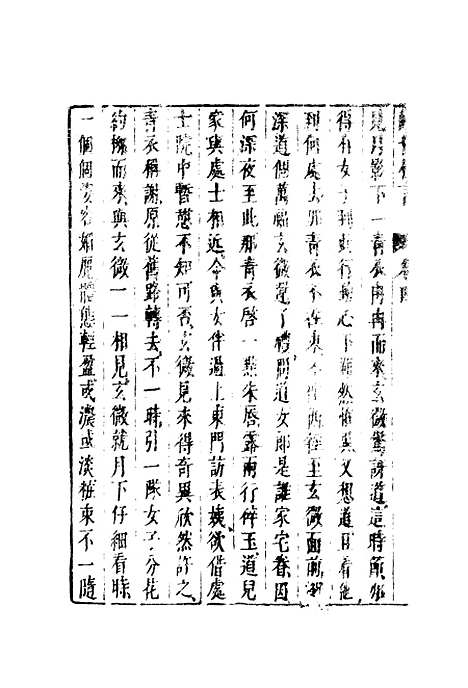 醒世恆言 卷四
見月影下一青衣冉冉而來玄微驚訝道這時節那
得有女子到此行動心下雖然怪異又想道且看他
到何處去那青衣不往東不往西徑至玄微面前深
深道個萬福玄微還了禮問道女郎是誰家宅眷因
何深夜至此那青衣啓一點朱唇露兩行碎玉道兒
家與處士相近今與女伴過上東門訪表姨欲借處
士院中暫憩不知可否玄微見來得奇異欣然許之
青衣稱謝原從舊路轉去不一時引一隊女子分花
約柳而來與玄微一一相見玄微就月下仔細看時
一個個姿容媚麗體態輕盈或濃或淡粧束不一隨